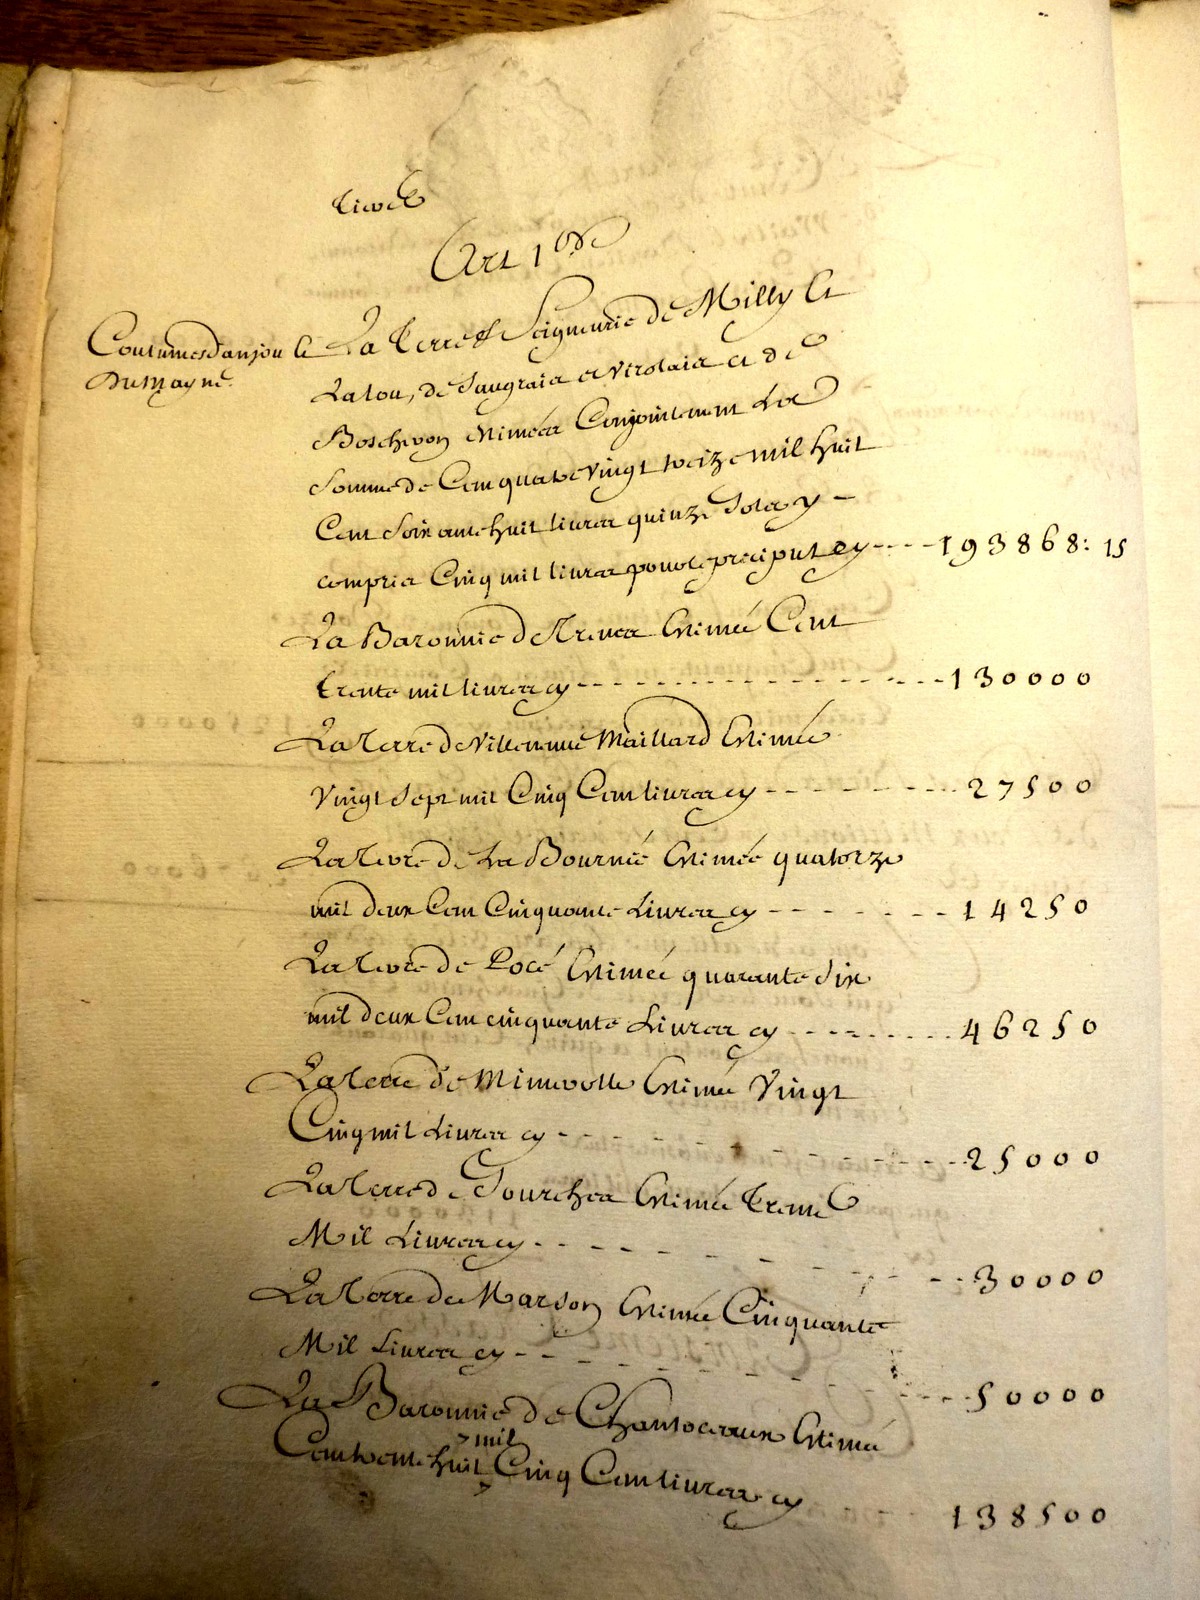 Art 1er
Coutumes d'anjou &
Du Mayne
La Terre & Seigneurie de Milly Et
La tour, de Saugraie et Virolaie et de
Boschivon Estimées Conjointement La
Somme de Cent quatrevingt treize mil huit
Cent Soixante huit livres quinze Sols y
compris Cinq mil livres pour le preciput cy ---- 193868: 15
La Baronnie de Treves Estimée Cent
trente mil livres cy ---- 130000
La Terre de Villeneuve Maillard Estimée
Vingt Sept mil Cinq Cent livres cy ---- 27500
La Terre de La Bournée Estimée quatorze
mil deux Cent Cinquante Livres cy ---- 14250
La Terre de Pocé Estimée quarante Six
mil deux Cent cinquante Livres cy ---- 46250
La Terre de Minerolle Estimée Vingt
Cinq mil Livres cy ---- 25000
La Terre de Sourches Estimée trente
Mil Livres cy ---- 30000
La Terre de Marson Estimée Cinquante
Mil Livres cy ---- 50000
La Baronnie de Chantoceaux Estimée
mil
Cent trente huit Cinq Cent livres cy ---- 138500